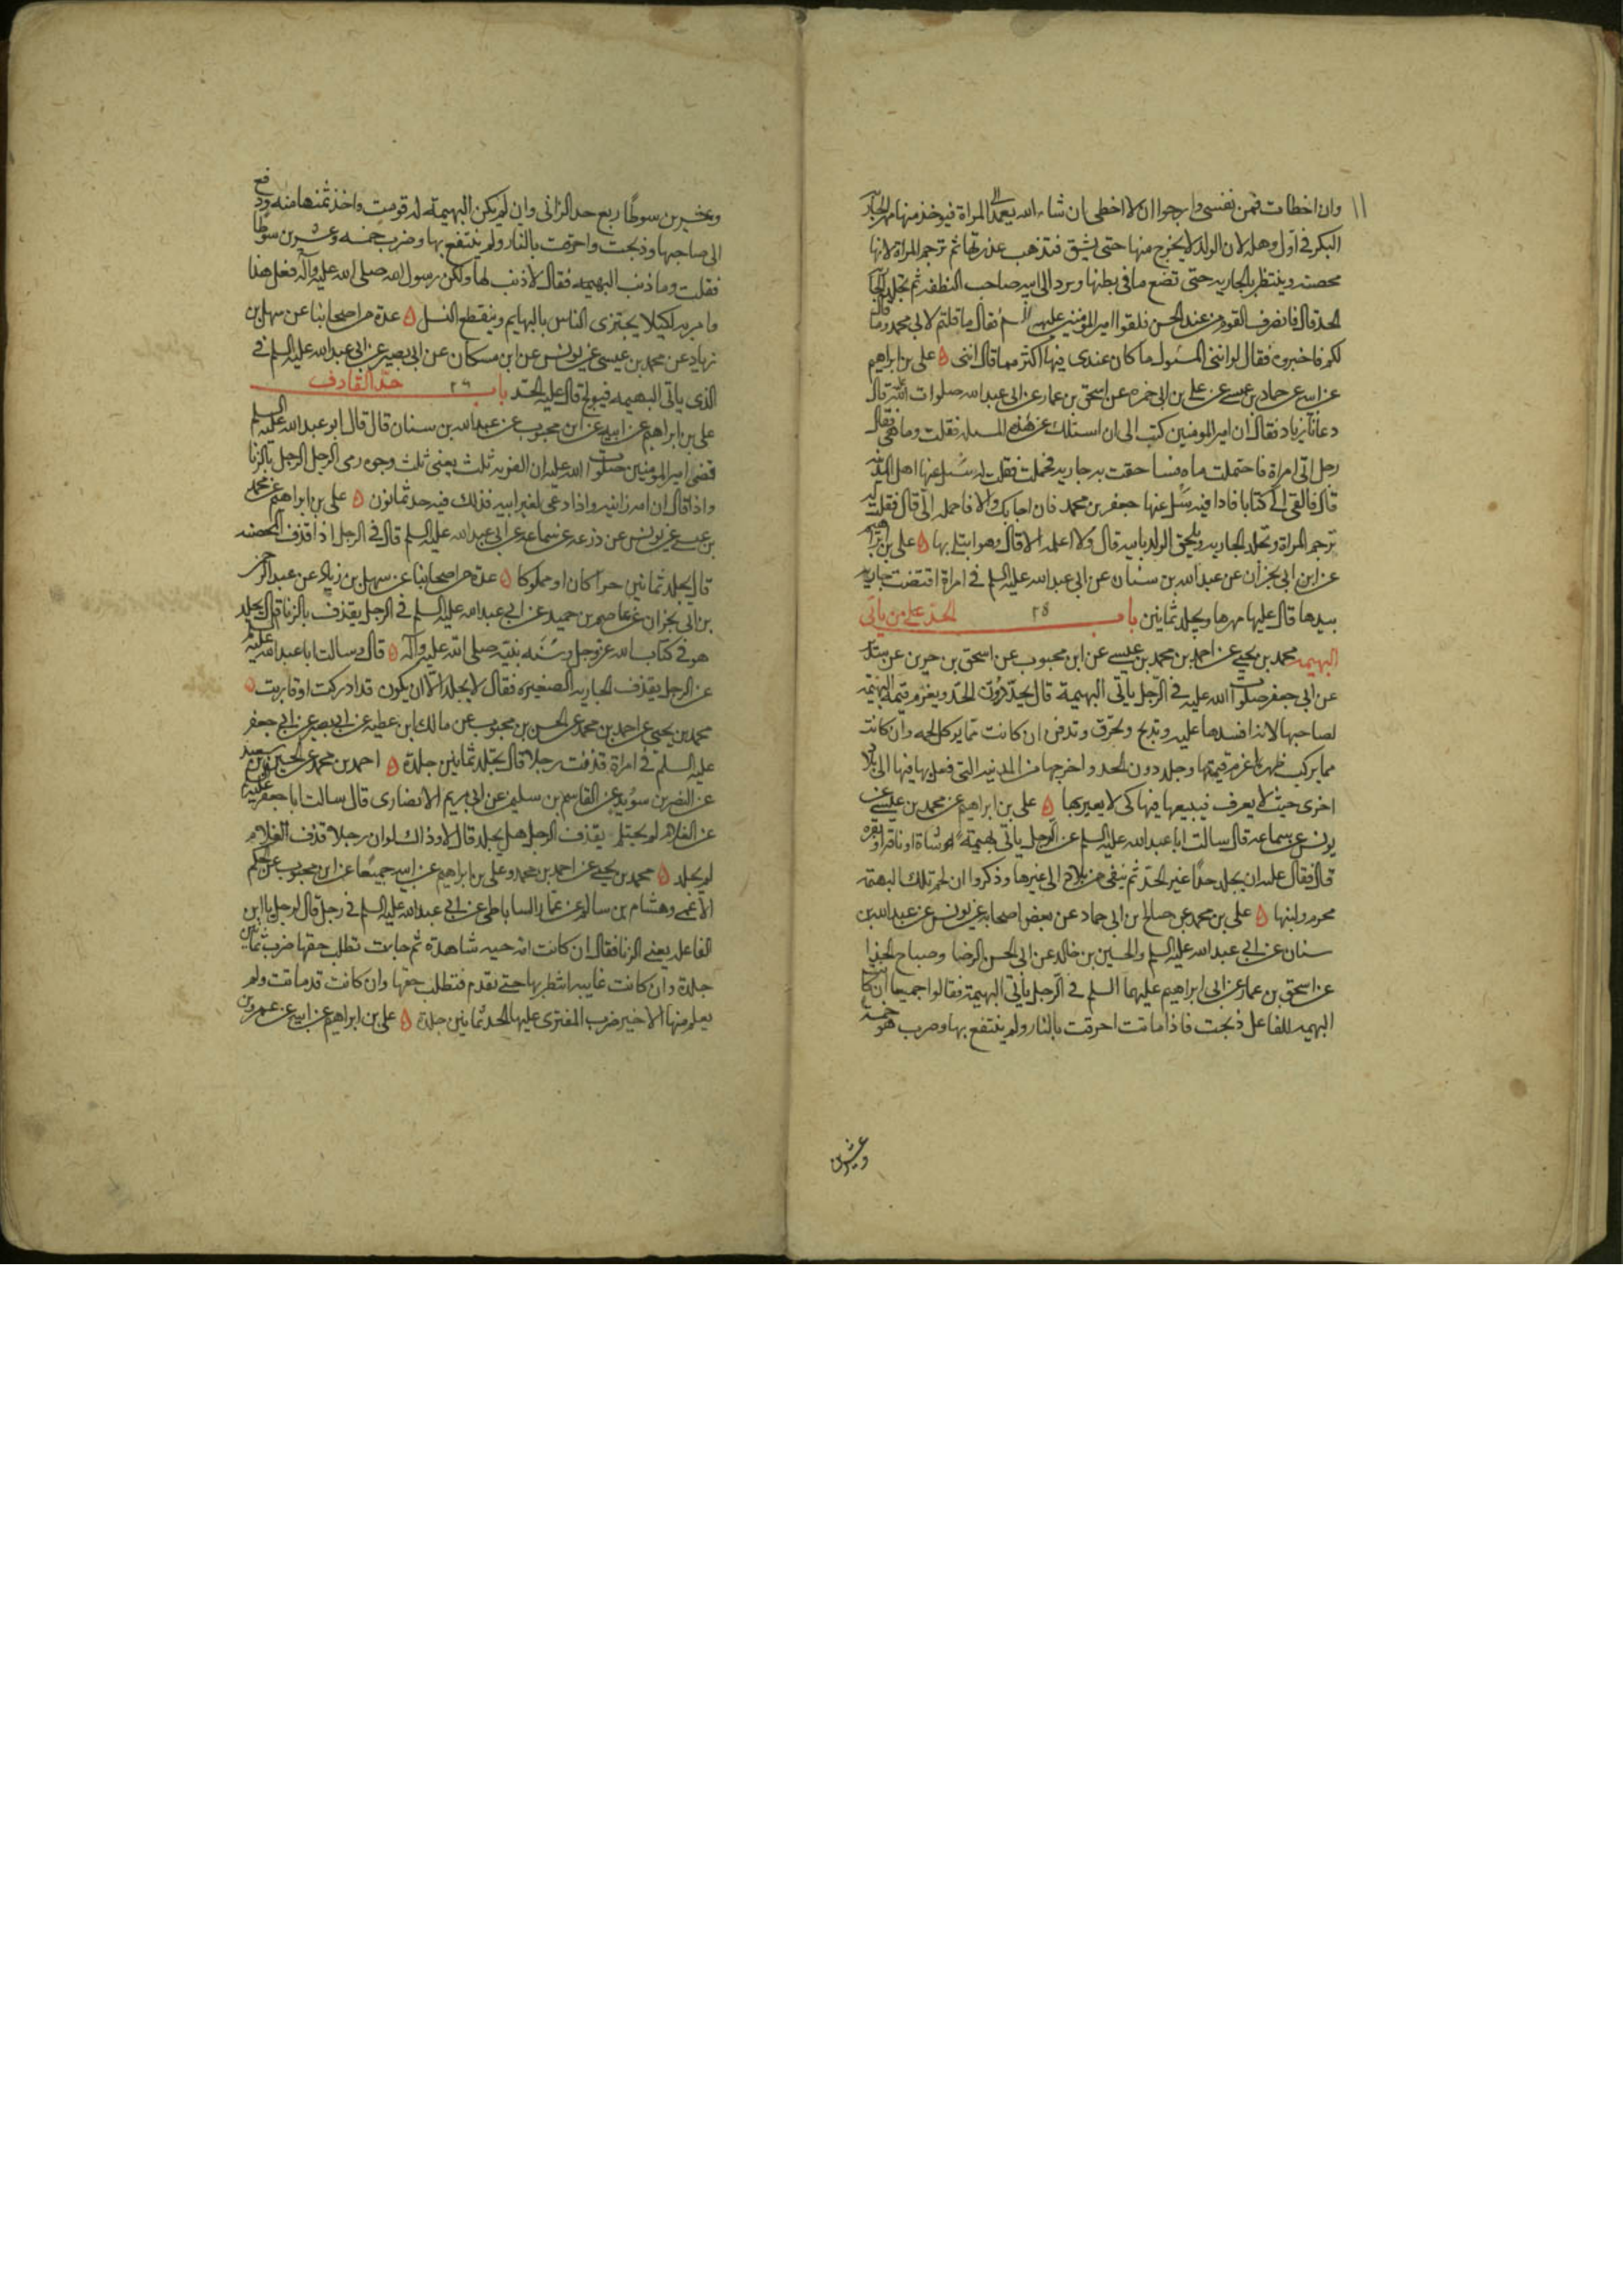 وان اخطات فمن نفسي وارجوا ان لا اخطي ان شاء الله يعمد الى المراة فيوخذ منها مهر الجارية
البكر في اول وهلة لان الولد لا يخرج منها حتى يشق فتذهب عذرتها ثم ترجم المراة لانها
محصنه وينتظر بالجاريه حتى تضع ما في بطنها ويرد الى ابيه صاحب النطفه ثم تجلد الجارية
الحد قال فانصرف القوم من عند الحسن فلقوا امير المومنين عليه السلم فقال ما قلتم لابي محمد وما قال
لكم فاخبروه فقال لو انني المسئول ما كان عندي فيها اكثر مما قال ابني ۵ علي بن ابراهيم
عن ابيه عن حماد بن عيسى عن علي بن ابي حمزه عن اسحق بن عمار عن ابي عبد الله صلوات الله عليه قال
دعانا زياد فقال ان امير المومنين كتب الى ان اسئلك عن هذه المسله فقلت وما هي فقال
رجل اتى امراة فاحتملت ماه فساحقت به جاريه فحملت فقلت له سل عنها اهل المدينه
قال فالقى الي كتابا فاذا فيه سل عنها جعفر بن محمد فان اجابك والا فاحمله الي قال فقلت له
ترجم المراة وتجلد الجاريه ويلحق الولد بابيه قال ولا اعلمه الا قال وهو ابتلي بها ۵ علي بن ابراهيم
عن ابن ابي نجران عن عبد الله بن سنان عن ابي عبد الله عليه السلم في امراة اقتضت جاريه
بيدها قال عليها مهرها ويجلد ثمانين باب ٢٥ الحد على من ياتي
البهيمه محمد بن يحيى عن احمد بن محمد بن عيسى عن ابن محبوب عن اسحق بن جرير عن سدير
عن ابي جعفر صلوات الله عليه في الرجل ياتي البهيمة قال يحد دون الحد ويغرم قيمة البهيمه
لصاحبها لانه افسدها عليه وتذبح وتحرق وتدفن ان كانت مما يوكل لحمه وان كانت
مما يركب ظهره اغرم قيمتها وجلد دون الحد واخرجها من المدينه التي فعل بها فيها الى بلاد
اخرى حيث لا يعرف فيبيعها فيها كي لا يعير بها ۵ علي بن ابراهيم عن محمد بن عيسى عن
يونس عن سماعه قال سالت ابا عبد الله عليه السلم عن الرجل ياتي بهيمة او شاة او ناقة او بقره
قال فقال عليه ان يجلد حدا غير الحد ثم ينفى من بلاده الى غيرها وذكروا ان لحم تلك البهيمه
محرم ولبنها ۵ علي بن محمد عن صالح بن ابي حماد عن بعض اصحابه عن يونس عن عبد الله بن
سنان عن ابي عبد الله عليه السلم والحسين بن خالد عن ابي الحسن الرضا وصباح الحذا
عن اسحق بن عمار عن ابي ابراهيم عليهما السلم في الرجل ياتي البهيمة فقالوا جميعا ان كانت
البهيمه للفاعل ذبحت فاذا ماتت احرقت بالنار ولم ينتفع بها وضرب هو خمسة
وعشرين
وعشرين سوطا ربع حد الزاني وان لم يكن البهيمة له قومت واخذ ثمنها منه ودفع
الى صاحبها وذبحت واحرقت بالنار ولم ينتفع بها وضرب خمسه وعشرين سوطا
فقلت وما ذنب البهيمه فقال لا ذنب لها ولكن رسول الله صلى الله عليه وآله فعل هذا
وامر به لكيلا يجتزى الناس بالبهايم وينقطع النسل ۵ عدة من اصحابنا عن سهل بن
زياد عن محمد بن عيسى عن يونس عن ابن مسكان عن ابي بصير عن ابي عبد الله عليه السلم في
الذي ياتي البهيمه فيولج قال عليه الحد باب ٢٦ حد القاذف
علي بن ابراهيم عن ابيه عن ابن محبوب عن عبد الله بن سنان قال قال ابو عبد الله عليه السلم
قضى امير المومنين صلوات الله عليه ان الفريه ثلث يعني ثلث وجوه رمى الرجل الرجل بالزنا
واذا قال ان امه زانيه واذا دعي لغير ابيه فذلك فيه حد ثمانون ۵ علي بن ابراهيم عن محمد
بن عيسى عن يونس عن زرعه عن سماعه عن ابي عبد الله عليه السلم قال في الرجل اذا قذف المحصنه
قال يجلد ثمانين حرا كان او مملوكا ۵ عدة من اصحابنا عن سهل بن زياد عن عبد الرحمن
بن ابي نجران عن عاصم بن حميد عن ابي عبد الله عليه السلم في الرجل يقذف بالزنا قال يجلد
هو في كتاب الله عز وجل وسنه نبيه صلى الله عليه وآله ۵ قال وسالت ابا عبد الله عليه السلم
عن الرجل يقذف الجاريه الصغيره فقال لا يجلد الا ان يكون قد ادركت او قاربت ۵
محمد بن يحيى عن احمد بن محمد عن الحسن بن محبوب عن مالك ابن عطيه عن ابي بصير عن ابي جعفر
عليه السلم في امراة قذفت رجلا قال تجلد ثمانين جلدة ۵ احمد بن محمد عن الحسين بن سعيد
عن النضر بن سويد عن القاسم بن سليم عن ابي مريم الانصاري قال سالت ابا جعفر عليه السلم
عن الغلام لم يحتلم يقذف الرجل هل يجلد قال لا وذاك لو ان رجلا قذف الغلام
لم يجلد ۵ محمد بن يحيى عن احمد بن محمد وعلي بن ابراهيم عن ابيه جميعا عن ابن محبوب عن الحكم
الاعمى وهشام بن سالم عن عمار الساباطي عن ابي عبد الله عليه السلم في رجل قال لرجل يا ابن
الفاعله يعني الزنا فقال ان كانت امه حيه شاهدة ثم جاءت تطلب حقها ضرب ثمانين
جلدة وان كانت غايبه انتظر بها حتى تقدم فتطلب حقها وان كانت قد ماتت ولم
يعلم منها الا خير ضرب المفترى عليها الحد ثمانين جلدة ۵ علي بن ابراهيم عن ابيه عن عمرو بن